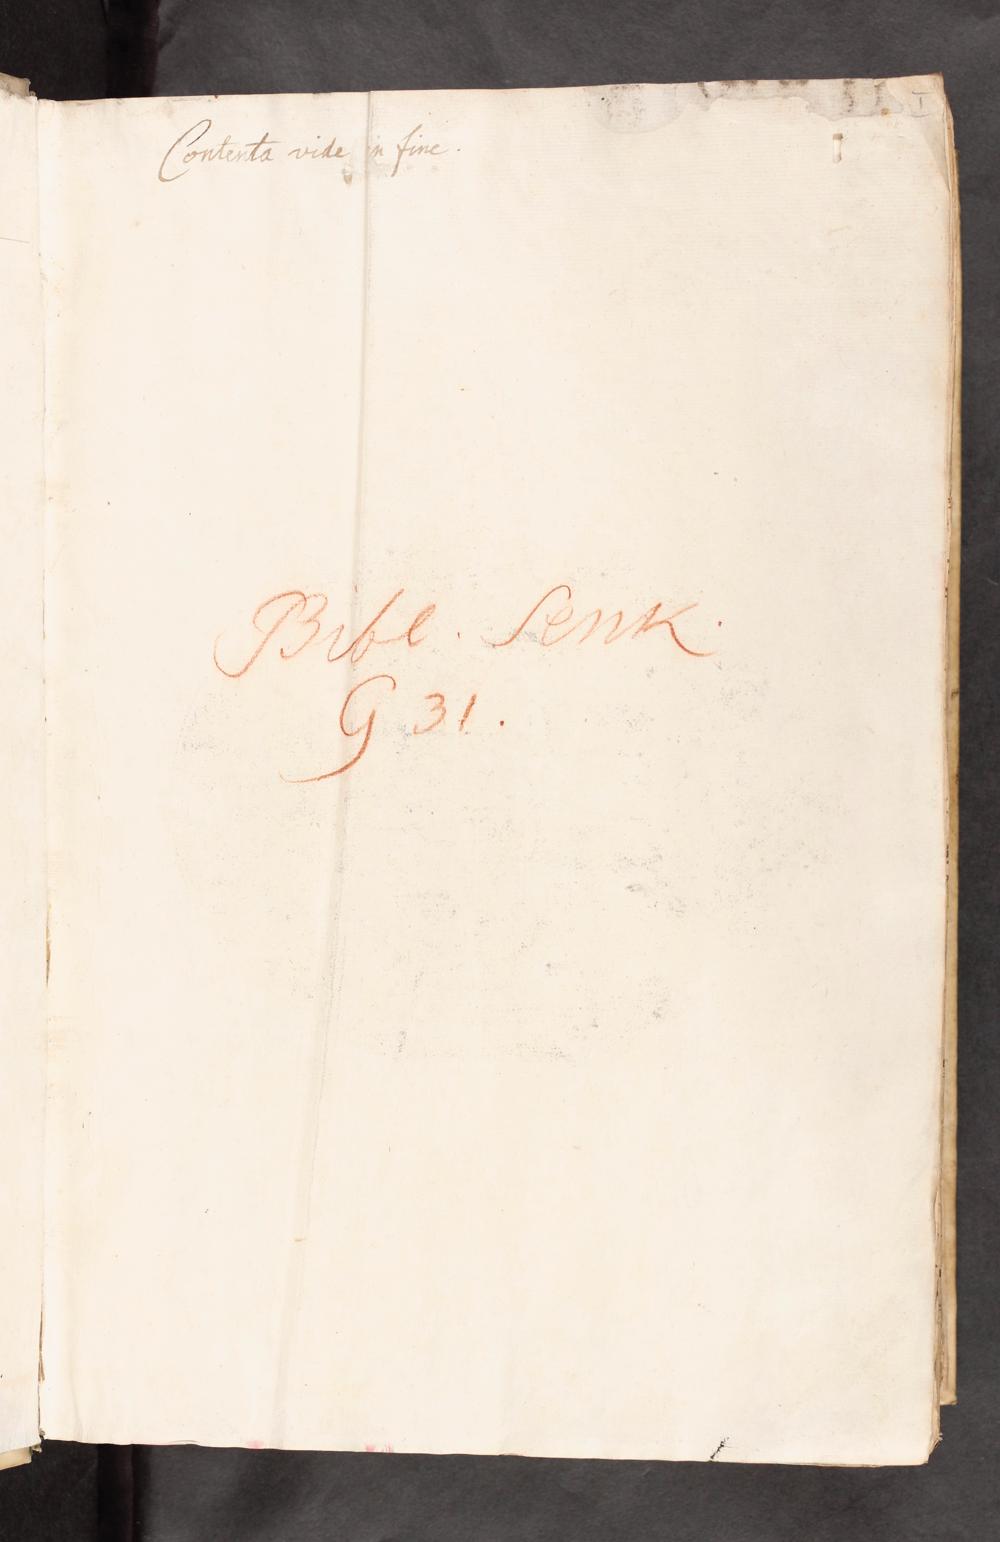 I
Contenta vide in fine.
Bibl. Senk.
G 31.